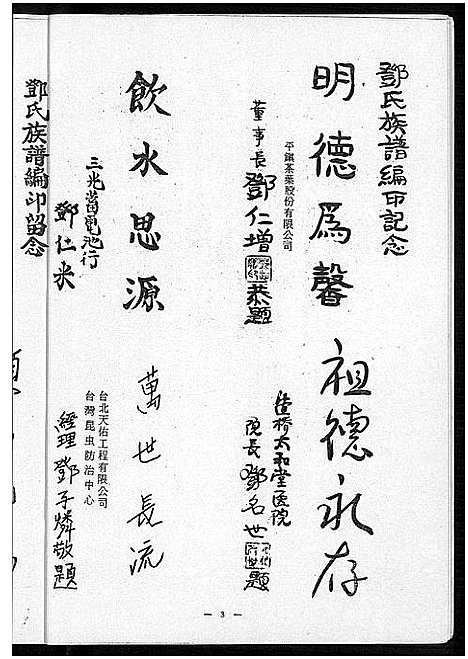 鄧氏族譜編印記念
明德爲馨
平鎮茶葉股份有限公司
董事長鄧仁增
恭題
祖德永存
佳橋太和堂医院
院長鄧名世
題
飲水思源
三光蓄電池行
鄧仁来
萬世長流
台北天佑工程有限公司
台灣昆虫防治中心
經理鄧子燐敬題
鄧氏族譜編印留念
— 3 —